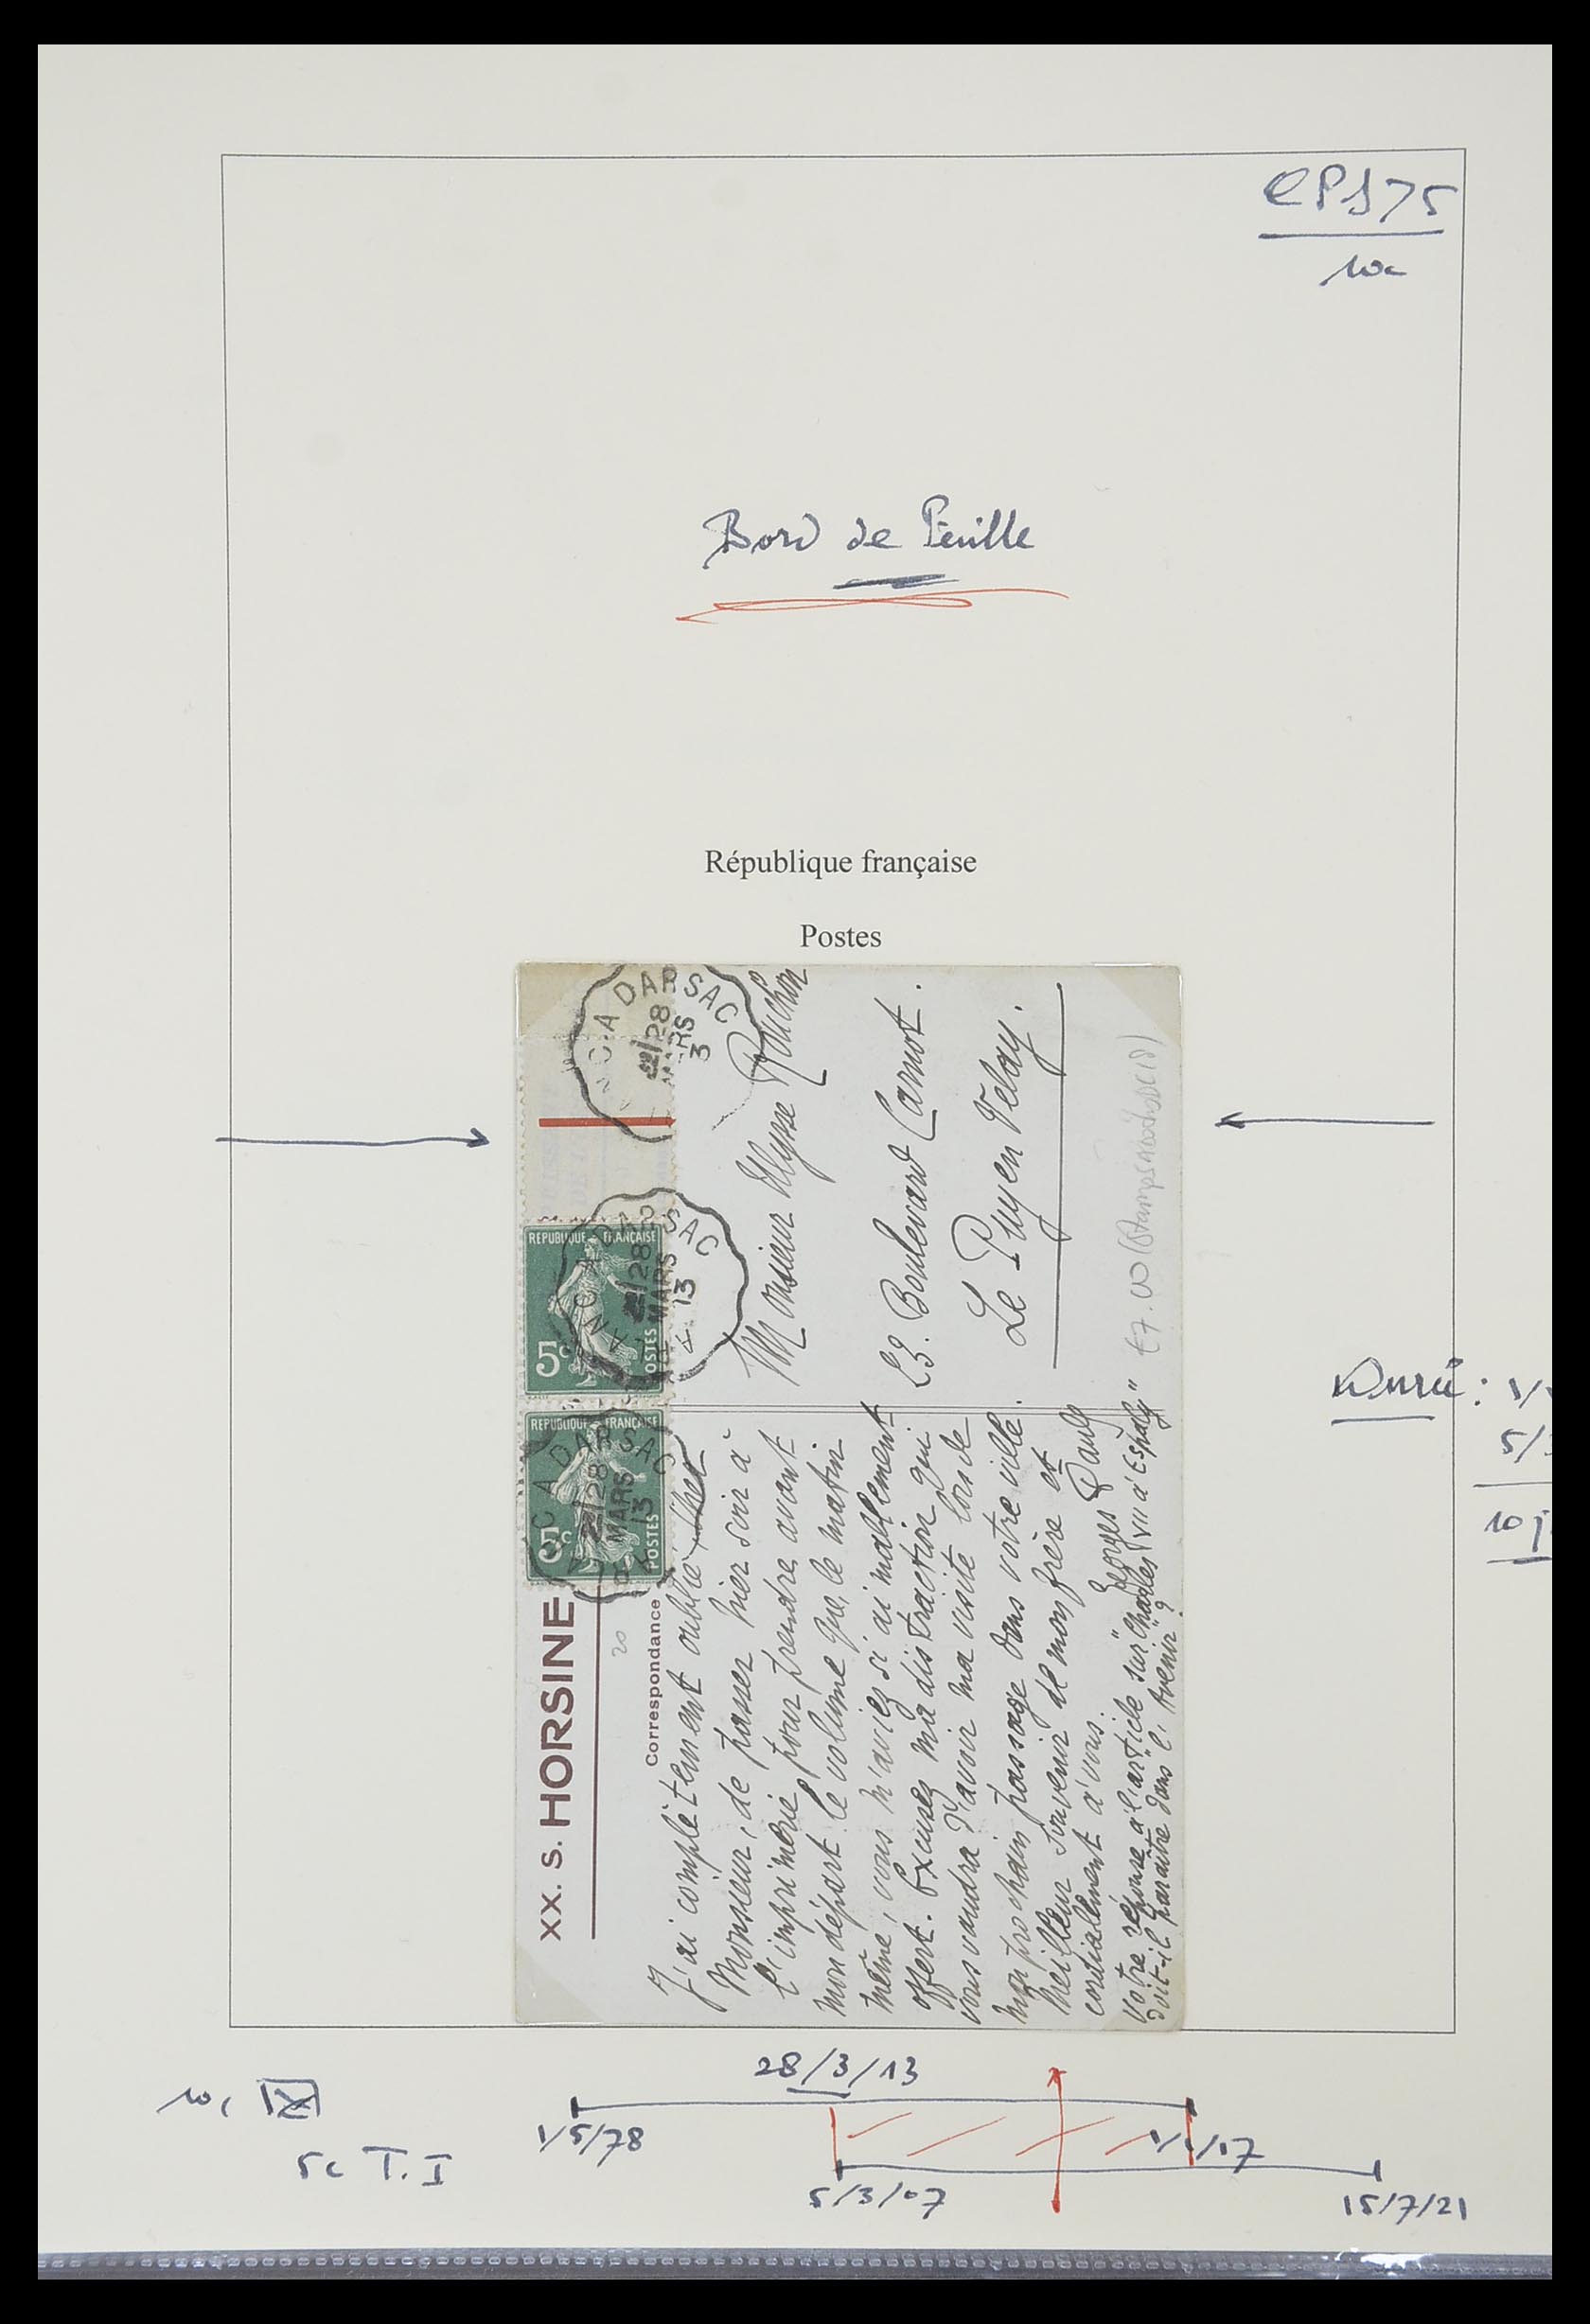 CPS 75
10c
Bord de Feuille
République française
Postes
A DARSAC
28
MARS
3
REPUBLIQUE FRANÇAISE
5c
POSTES
A DARSAC
28
MARS
13
REPUBLIQUE FRANÇAISE
5c
POSTES
A DARSAC
28
MARS
13
Monsieur Ulysse Rouchon
23. Boulevard Carnot.
Le Puy en Velay.
€7.00
XX. S. HORSINE
20
Correspondance
J'ai complètement oublié, cher
Monsieur, de passer hier soir à
l'imprimerie pour prendre, avant
mon départ le volume que, le matin
même, vous m'aviez si aimablement
offert. Excusez ma distraction qui
vous vaudra d'avoir ma visite lors de
mon prochain passage dans votre ville.
Meilleur souvenir de mon frère et
cordialement à vous.
Georges Paul
Votre réponse à l'article sur "Charles VII à Espaly"
doit-il paraitre dans "l'Avenir"?
Durée :
5/
10 j
28/3/13
10c
1/5/78
1/1/17
5c T. I
5/3/07
15/7/21